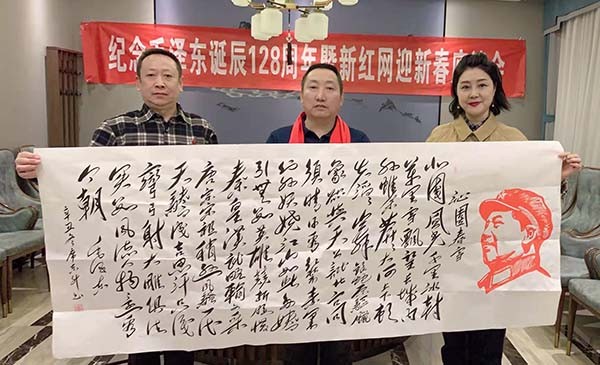 纪念毛泽东诞辰128周年暨新红网迎新春座谈会
沁园春雪
北国风光千里冰封
万里雪飘望长城内
外惟余莽莽大河上下顿
失滔滔山舞银蛇原驰蜡
象欲与天公试比高
须晴日看红装素裹
分外妖娆江山如此多娇
引无数英雄竞折腰惜
秦皇汉武略输文采
唐宗宋祖稍逊风骚一代
天骄成吉思汗只识
弯弓射大雕俱往
矣数风流人物还看
今朝 毛泽东
辛丑冬